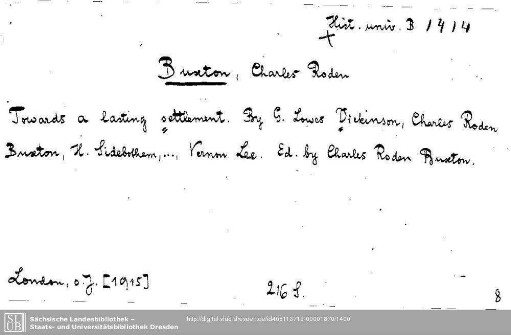 Hist. univ. B 1414
Buxton, Charles Roden
Towards a lasting settlement. By G. Lowes Dickinson, Charles Roden
Buxton, H. Sidebothem,..., Vernon Lee. Ed. by Charles Roden Buxton.
London, o.J. [1915]
216 S.
8
SLUB
Sächsische Landesbibliothek –
Staats- und Universitätsbibliothek Dresden